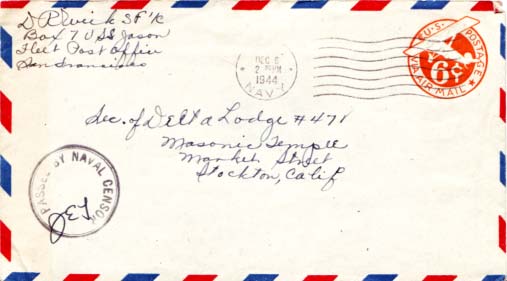 D R Wick SF 1/c
Box 7 USS Jason
Fleet Post Office
San Francisco
DEC 6
2 PM
1944
NAVY
U.S. POSTAGE
6¢
VIA AIR MAIL
Sec. of Delta Lodge #471
Masonic Temple
Market Street
Stockton, Calif
PASSED BY NAVAL CENSOR